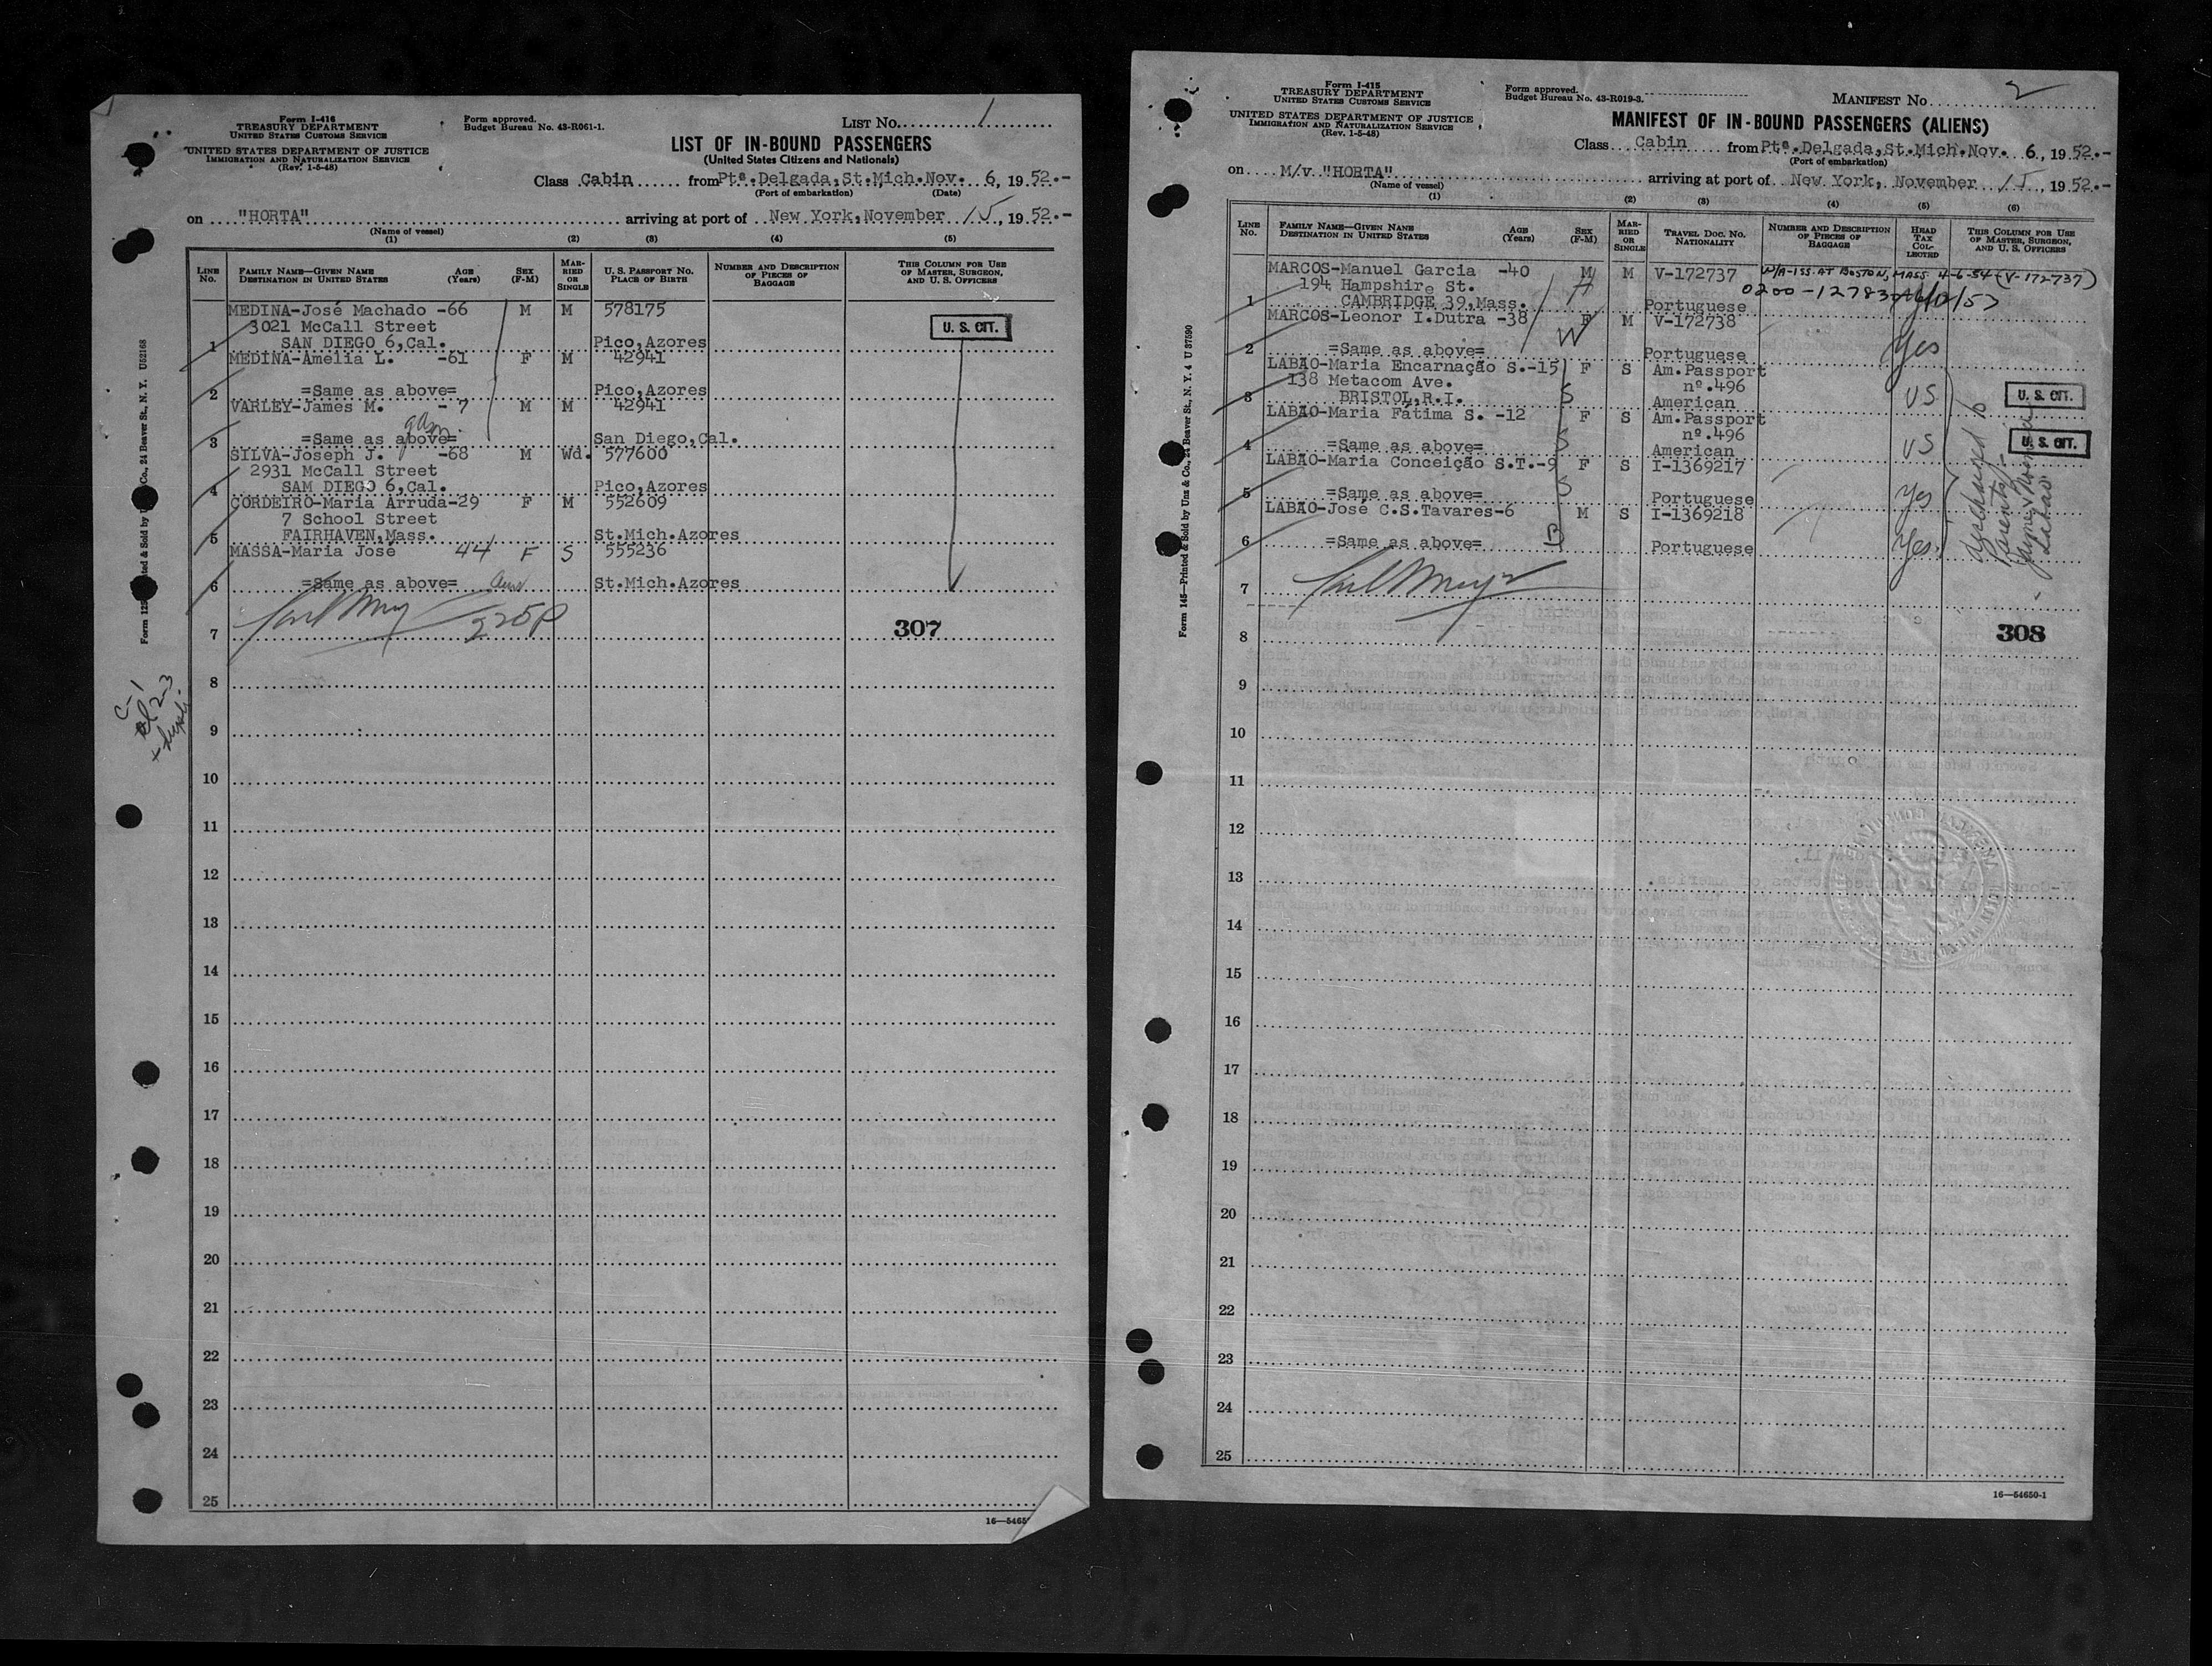 Form I-416
TREASURY DEPARTMENT
UNITED STATES CUSTOMS SERVICE
UNITED STATES DEPARTMENT OF JUSTICE
IMMIGRATION AND NATURALIZATION SERVICE
(Rev. 1-5-48)
Form approved.
Budget Bureau No. 43-R061-1.
LIST No. 1
LIST OF IN-BOUND PASSENGERS
(United States Citizens and Nationals)
Class Cabin from Ptª.Delgada,St.Mich.Nov. 6, 1952.-
(Port of embarkation) (Date)
on "HORTA" arriving at port of New York,November 15, 1952.-
(Name of vessel)
(1) (2) (3) (4) (5)
LINE No. FAMILY NAME—GIVEN NAME DESTINATION IN UNITED STATES AGE (Years) SEX (F-M) MARRIED OR SINGLE U. S. PASSPORT No. PLACE OF BIRTH NUMBER AND DESCRIPTION OF PIECES OF BAGGAGE THIS COLUMN FOR USE OF MASTER, SURGEON, AND U. S. OFFICERS
MEDINA-José Machado -66 M M 578175
3021 McCall Street U. S. CIT.
1 SAN DIEGO 6,Cal. Pico,Azores
MEDINA-Amélia L. -61 F M 42941
2 =Same as above= Pico,Azores
VARLEY-James M. - 7 M M 42941
3 =Same as above= San Diego,Cal.
SILVA-Joseph J. -68 M Wd. 577600
2931 McCall Street
4 SAM DIEGO 6,Cal. Pico,Azores
CORDEIRO-Maria Arruda-29 F M 552609
7 School Street
5 FAIRHAVEN,Mass. St.Mich.Azores
MASSA-Maria José 44 F S 555236
6 =Same as above= St.Mich.Azores
7 225P 307
8
9
10
11
12
13
14
15
16
17
18
19
20
21
22
23
24
25
C-1
Form I-415
TREASURY DEPARTMENT
UNITED STATES CUSTOMS SERVICE
UNITED STATES DEPARTMENT OF JUSTICE
IMMIGRATION AND NATURALIZATION SERVICE
(Rev. 1-5-48)
Form approved.
Budget Bureau No. 43-R019-3.
MANIFEST No. 2
MANIFEST OF IN-BOUND PASSENGERS (ALIENS)
Class Cabin from Ptª.Delgada,St.Mich.Nov. 6, 1952.-
(Port of embarkation)
on M/v "HORTA" arriving at port of New York, November 15, 1952.-
(Name of vessel)
(1) (2) (3) (4) (5) (6)
LINE No. FAMILY NAME—GIVEN NAME DESTINATION IN UNITED STATES AGE (Years) SEX (F-M) MARRIED OR SINGLE TRAVEL DOC. No. NATIONALITY NUMBER AND DESCRIPTION OF PIECES OF BAGGAGE HEAD TAX COLLECTED THIS COLUMN FOR USE OF MASTER, SURGEON, AND U. S. OFFICERS
MARCOS-Manuel Garcia -40 M M V-172737 W/A-ISS. AT BOSTON, MASS. 4-6-54 (V-172737)
194 Hampshire St. H
1 CAMBRIDGE 39,Mass. Portuguese
MARCOS-Leonor I.Dutra -38 F M V-172738
W
2 =Same as above= Portuguese Yes
LABÃO-Maria Encarnação S.-15 F S Am.Passport
138 Metacom Ave. nº.496
3 BRISTOL,R.I. S American US U. S. CIT.
LABÃO-Maria Fátima S. -12 F S Am.Passport
nº.496
4 =Same as above= S American US U. S. CIT.
LABÃO-Maria Conceição S.T.-9 F S I-1369217
5 =Same as above= S Portuguese Yes
LABÃO-José C.S.Tavares-6 M S I-1369218
6 =Same as above= B Portuguese Yes
7
8 308
9
10
11
12
13
14
15
16
17
18
19
20
21
22
23
24
25
16—54650-1